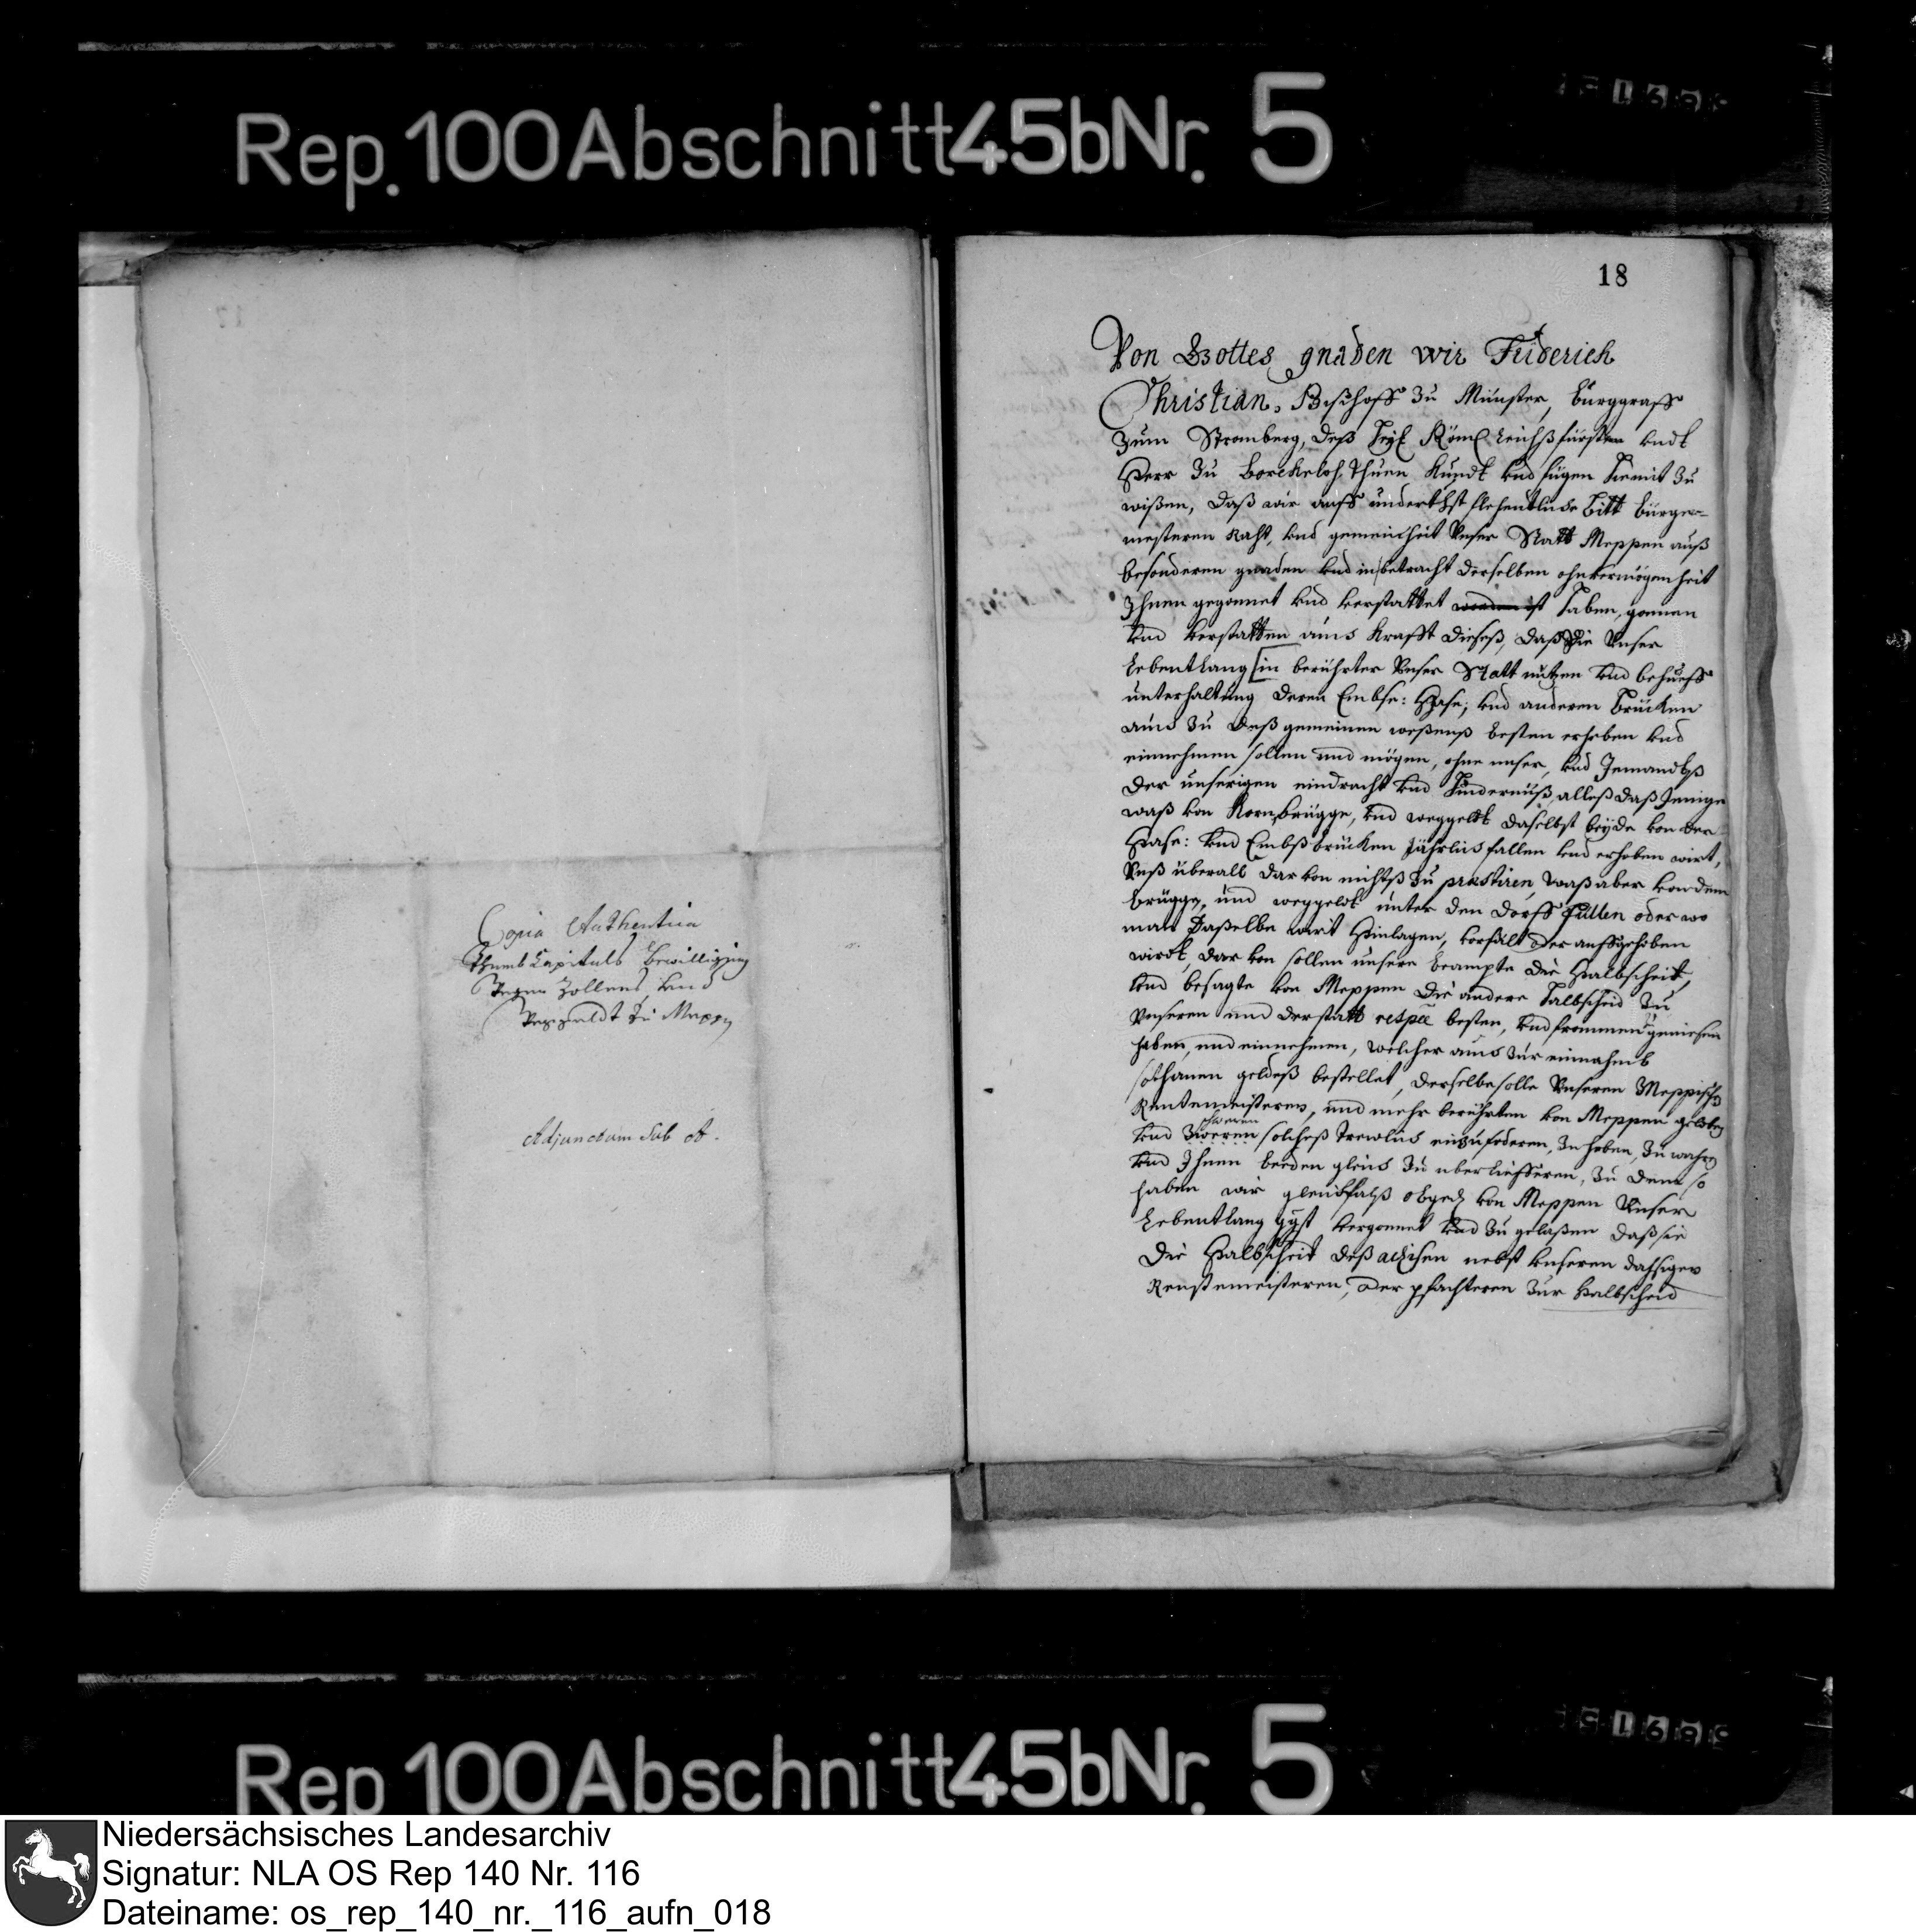 Rep. 100 Abschnitt 45b Nr. 5
Copia Authentica
Thumb Capituls bewilligung
wegen Zollens, und
weggeldt zu Meppen
Adjunctum Sub A.
18
Von Gottes gnaden wir Friderich
Christian, Bischoff zu Münster, burggraff
zum Stromberg, deß heyl Röm Reichß fürsten vndt
Herr zu borckeloh, thuen kundt vnd fügen hiemit zu
wißen, daß wir auff underthst flehentliche bitt bürger-
mesteren Raht, vnd gemeinheit Vnser Statt Meppen auß
besonderen gnaden vnd in betracht derselben ohnvermögenheit
Ihnen gegonnet vnd verstattet worden ist haben, gonnen
vnd verstatten auch krafft dieses, daß Sie Vnser
Lebentlang in berührter Vnser Statt nutzen vnd behueff
unterhaltung deren Embse: Hase, vnd anderen brücken
auch zu deß gemeinen weßenß besten erheben vnd
einnehmen sollen und mögen, ohne unser, vnd Jemandtß
der unserigen eindracht vnd hindernuß, alleß daß Jenige
waß von Korn, brügge, vnd weggeldt daselbst beyde von der
Hase: vnd Embß brücken Jährlich fallen vnd erhoben wirt,
Vnß überall dar von nichtß zu præstiren, waß aber von dem
brügge, und weggeldt unter den dorff Fullen oder wo
man daßelbe wirt hinlagen, vorfält oder auffgehoben
wirdt, dar von sollen unsere beampte die Halbscheit,
vnd besagte von Meppen die andere halbscheid zu
Vnseren und der statt respee besten, vnd frommen geniesen
haben, und einnehmen, welcher auch zur einnahmb
sothanen geldeß bestellet, derselbe solle Vnseren Meppischen
Rentemeisteren, und mehr berührten von Meppen geloben
schweren
vnd zweren solcheß trewlich einzuforderen, zu heben, zu wahren
vnd Ihnen beeden gleich zu uberliefferen, zu deme so
haben wir gleichfalß obged von Meppen Unser
Lebentlang ggst vergonnet vnd zugelaßen daß sie
die Halbscheit deß achisen nebst vnseren dahsigen
Rentemeisteren, der pfachteren zur Halbscheid
Rep 100 Abschnitt 45b Nr. 5
Niedersächsisches Landesarchiv
Signatur: NLA OS Rep 140 Nr. 116
Dateiname: os_rep_140_nr._116_aufn_018